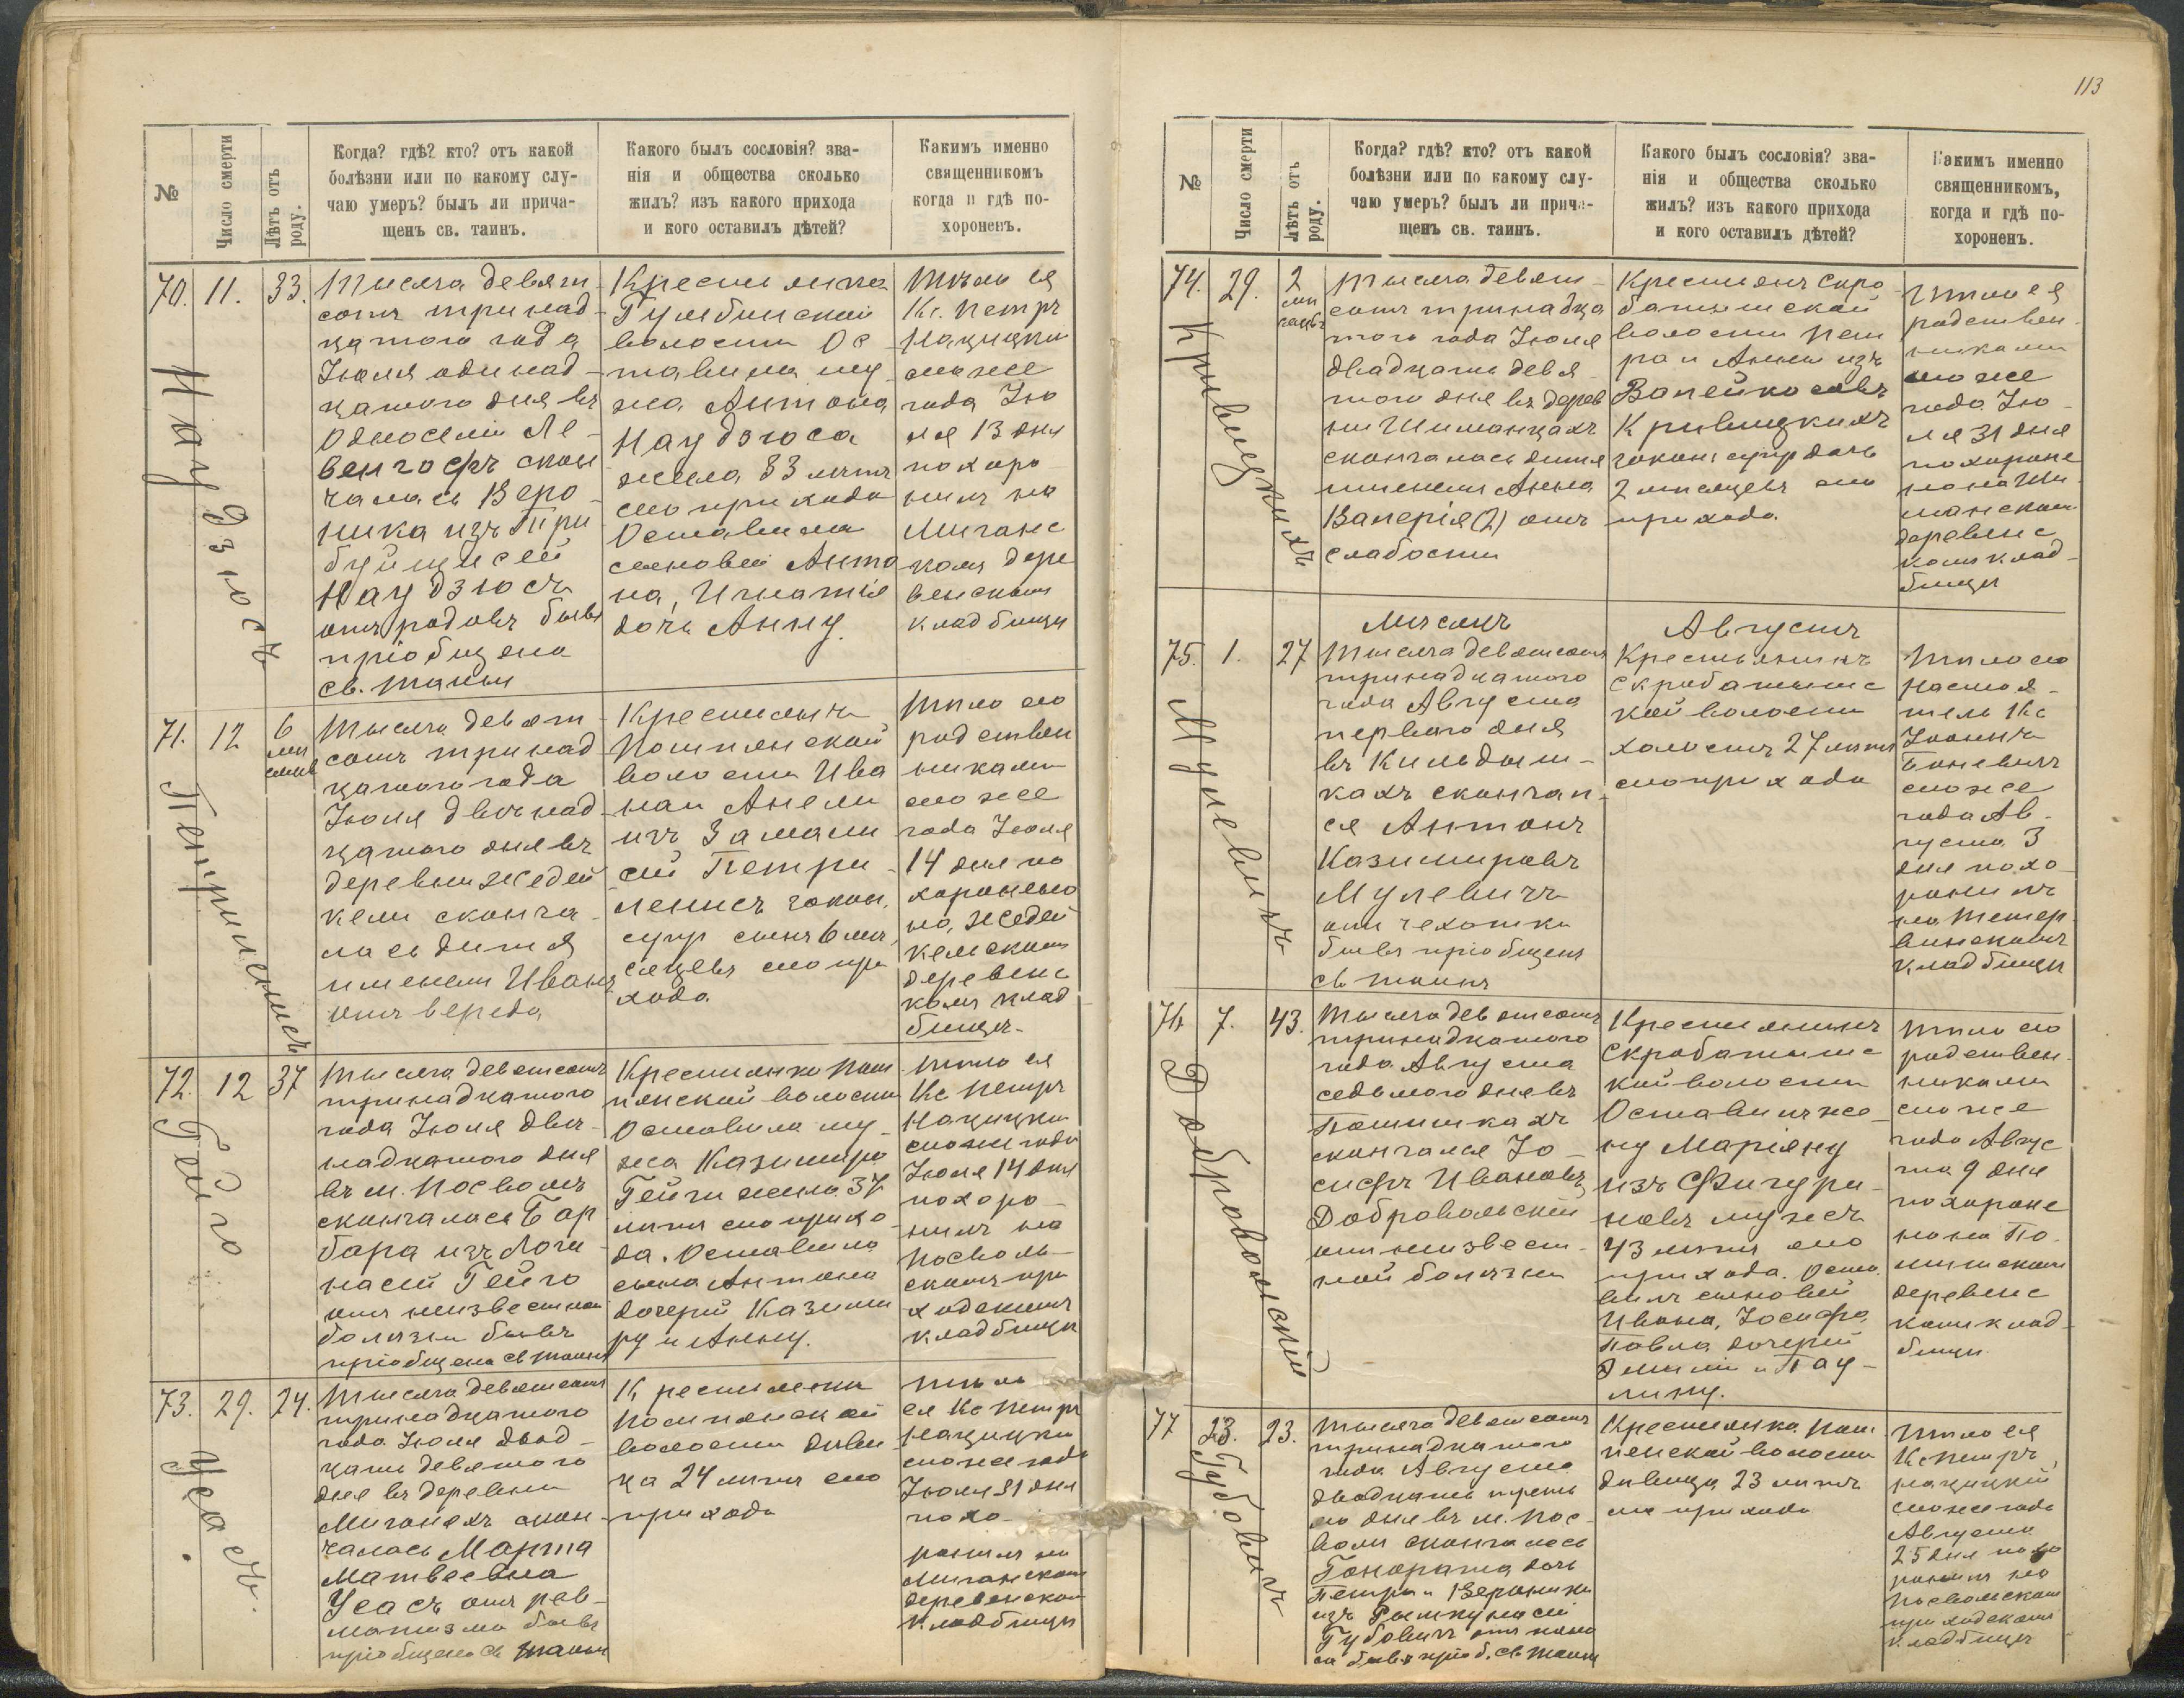 113
№
Число смерти
Лѣтъ отъ
роду.
Когда? гдѣ? кто? отъ какой
болѣзни или по какому слу-
чаю умеръ? былъ ли прича-
щенъ св. таинъ.
Какого былъ сословія? зва-
нія и общества сколько
жилъ? изъ какого прихода
и кого оставилъ дѣтей?
Какимъ именно
священникомъ
когда и гдѣ по-
хороненъ.
70.
11.
33.
Наудзюсъ
Тысяча девят-
сотъ тринад-
цатого года
Іюля одинад-
цатого дня въ
односеліи Ле-
венгофъ скон
чалась Веро-
ника изъ При
буйщисей
Наудзюсъ
отъ родовъ бывъ
пріобщена
св. таинъ
Крестьянка
Гулбинской
волости Ос-
тавила му-
жа Антона
Наудзюса
жила 33 лѣтъ
сего прихода
Оставила
сыновей Анто
на, Игнатія
дочь Анну.
Тѣло ея
Кс. Петръ
Нацицки
сего же
года Ію
ля 13 дня
похоро
нилъ на
Миганс
комъ дере
венскомъ
кладбищи
71.
12
6
мѣ
сяцев
Петрилянисъ
Тысяча девят-
сотъ тринад
цатого года
Іюля двенад-
цатого дня въ
деревни Жедей
кели сконча-
лась дитя
именем Иванъ
отъ вереда
Крестьянъ
Помпянской
волости Ива
на и Анели
изъ Замали
сій Петри-
ленисъ закон.
супр сынъ 6 мѣ
сяцевъ сего при
хода
Тѣло его
родствен
никами
сего же
года Іюля
14 дня по
хоронено
на, Жедей
келскомъ
деревенс
комъ клад
бищи-
72.
12
37
Гейго
Тысяча девятсотъ
тринадцатого
года Іюля две-
надцатого дня
въ м. Посволъ
скончалась Бар
бара изъ Логи
насій Гейго
отъ неизвестной
болѣзни бывъ
пріобщена св таинъ
Крестьянка Пом
пянской волости
Оставила му-
жа Казимира
Гейги жила 37
лѣтъ сего прихо-
да. Оставила
сына Антона
дочерей Казими
ру и Анну.
Тѣло ея
Кс Петръ
Нацицки
сего же года
Іюля 14 дня
похоро-
нилъ на
Посволь-
скомъ при
ходскимъ
кладбищи
73.
29.
24.
Усасъ.
Тысяча девятсотъ
тринадцатого
года Іюля двад-
цать девятого
дня въ деревни
Миганехъ скон-
чалась Марта
Матвеевна
Усасъ отъ рев-
матизма бывъ
пріобщена св таинъ
Крестьянка
Помпянской
волости деви
ца 24 лѣтъ сего
прихода
Тѣло
ея Кс Петръ
Нацицки
сего же года
Іюля 31 дня
похо-
ронилъ на
Миганском
деревенском
кладбищи
№
Число смерти
Лѣтъ отъ
роду.
Когда? гдѣ? кто? отъ какой
болѣзни или по какому слу-
чаю умеръ? былъ ли прича-
щенъ св. таинъ.
Какого былъ сословія? зва-
нія и общества сколько
жилъ? изъ какого прихода
и кого оставилъ дѣтей?
Какимъ именно
священникомъ,
когда и гдѣ по-
хороненъ.
74.
29.
2
мѣ
сяцевъ
Кривицкихъ
Тысяча девят-
сотъ тринадца
того года Іюля
двадцать девя-
того дня въ дерев
ни Шиманцахъ
скончалась дитя
именемъ Анна
Валерія (2) отъ
слабости
Крестьянъ Скро-
батышской
волости Пет
ра и Анны изъ
Валейкосовъ
Кривицкихъ
закон супр дочь
2 мѣсяцевъ сего
прихода.
Тѣло ея
родствен-
никами
сего же
года Ію-
ля 31 дня
похороне
но на Ши-
манском
деревенс
комъ клад-
бищи
Мѣсяцъ
Августъ
75.
1.
27
Мулевичъ
Тысяча девятсотъ
тринадцатого
года Августа
первого дня
въ Кильдыш-
кахъ скончал-
ся Антонъ
Казимировъ
Мулевичъ
отъ чехотки
бывъ пріобщенъ
св таинъ
Крестьянинъ
Скробатышс
кой волости
холостъ 27 лѣтъ
сего прихода
Тѣло его
Настоя-
тель Кс
Іоаннъ
сего же
года Ав-
густа 3
дня похо-
ронилъ
на Тетер-
винскомъ
кладбищи
76
7.
43.
Добровольскій
Тысяча девятсотъ
тринадцатого
года Августа
седьмого дня въ
скончался Іо-
сифъ Ивановъ
Добровольскій
отъ неизвест-
ной болѣзни
Крестьянинъ
Скробатышс
кой волости
Оставилъ же-
ну Маріяну
изъ Фигури-
новъ мужъ
43 лѣтъ сего
прихода. Оста
вилъ сыновей
Ивана, Іосифа,
Павла дочерей
Эмилію и Пау-
лину.
Тѣло его
родствен-
никами
сего же
года Авгус
та 9 дня
похороне
но на По-
деревенс
комъ клад-
бищи.
77
23.
23.
Губовичъ
Тысяча девятсотъ
тринадцатого
года Августа
двадцать треть
го дня въ м. Пос-
воли скончалась
Гонората дочь
Петра и Вероники
изъ Рымкунасій
Губовичъ отъ
бывъ пріоб. св таинъ
Крестьянка Пом
пянской волости
дѣвица 23 лѣтъ
сего прихода
Тѣло ея
Кс Петръ
Нацицкій
сего же года
Августа
25 дня похо
ронилъ на
Посвольскомъ
приходскомъ
кладбищи